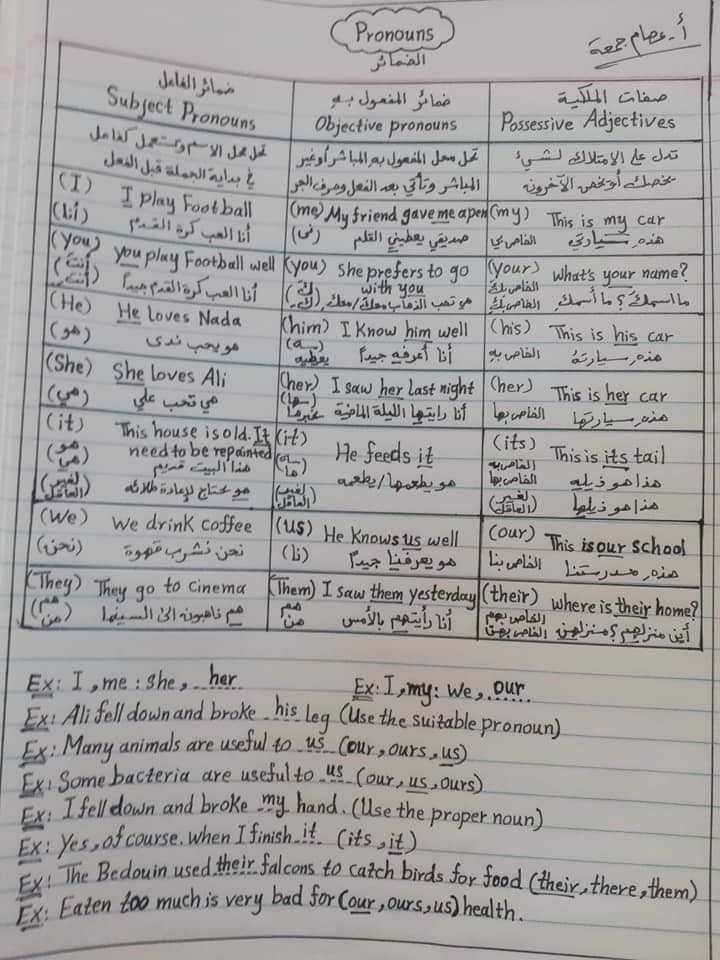 Pronouns
الضمائر
أ. عصام جمعة
ضمائر الفاعل
Subject Pronouns
ضمائر المفعول به
Objective pronouns
صفات الملكية
Possessive Adjectives
تحل محل الاسم وتستعمل كفاعل
في بداية الجملة قبل الفعل
تحل محل المفعول به المباشر أوغير
المباشر وتأتي بعد الفعل وحرف الجر
تدل على الامتلاك لشيء
يخصك أو يخص الآخرون
(I) I play Football
(أنا) أنا العب كرة القدم
(me) My friend gave me a pen
(ني) صديقي يعطيني القلم
(my) This is my car
الخاص بي هذه سيارتي
(you) you play Football well
(أنت) أنا العب كرة القدم جيداً
(you) She prefers to go
with you
(ك) هو تحب الذهاب معك/معك
(your) what's your name?
الخاص بك ما اسمك؟ ما أسمك
الخاص بك
(He) He loves Nada
(هو) هو يحب ندى
(him) I Know him well
(ـه) أنا أعرفه جيداً
يعطيه
(his) This is his car
الخاص به هذه سيارته
(She) She loves Ali
(هي) هي تحب علي
(her) I saw her last night
(ـها) أنا رايتها الليلة الماضية
يخبرها
(her) This is her car
الخاص بها هذه سيارتها
(it) This house is old. It
need to be repainted
هو هذا البيت قديم
هي هو يحتاج لإعادة طلائه
(لغير العاقل)
(it) He feeds it
ـه ها هو يطعمها/يطعمه
(لغير العاقل)
(its) This is its tail
الخاص به هذا هو ذيله
الخاص بها هذا هو ذيلها
(لغير العاقل)
(We) We drink coffee
(نحن) نحن نشرب قهوة
(us) He Knows us well
(نا) هو يعرفنا جيداً
(our) This is our school
الخاص بنا هذه مدرستنا
(They) They go to cinema
(هم هن) هم ذاهبون الى السينما
(Them) I saw them yesterday
هم هن أنا رأيتهم بالأمس
(their) where is their home?
الخاص بهم أين منزلهم؟ منزلهن
الخاص بهن
Ex: I, me : she, her
Ex: I, my: We, our
Ex: Ali fell down and broke his leg (Use the suitable pronoun)
Ex: Many animals are useful to us (our, ours, us)
Ex: Some bacteria are useful to us (our, us, ours)
Ex: I fell down and broke my hand. (Use the proper noun)
Ex: Yes, of course. when I finish it (its, it)
Ex: The Bedouin used their falcons to catch birds for food (their, there, them)
Ex: Eaten too much is very bad for (our, ours, us) health.